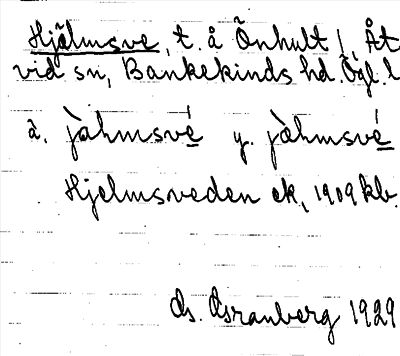 Hjälmsve, t. å Önhult 1, Åt
vid sn, Bankekinds hd. Ögl. l
ä. jàhmsvé y. jæ̀hmsvé
Hjelmsveden ek, 1909 kb.
1929